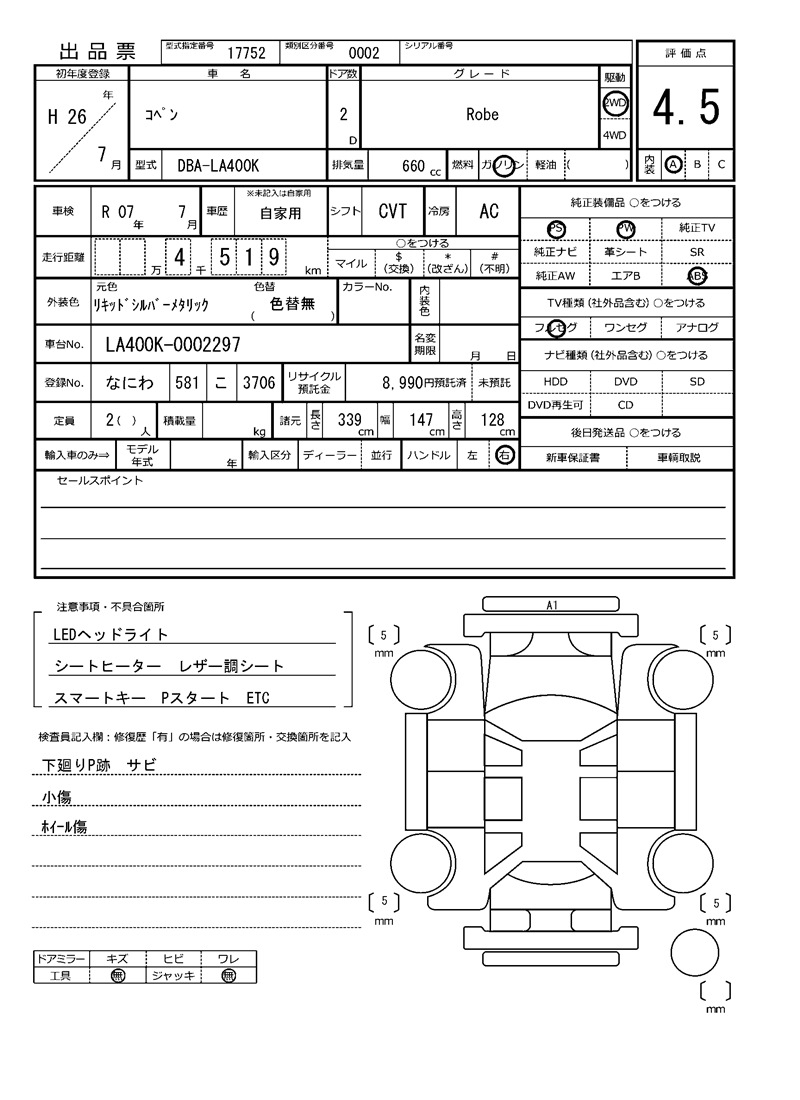 出品票 型式指定番号 17752 類別区分番号 0002 シリアル番号
評価点
4.5
初年度登録 車名 ドア数 グレード 駆動
H 26 年 7 月 コペン 2 D Robe 2WD
4WD
型式 DBA-LA400K 排気量 660 cc 燃料 ガソリン 軽油 ( )
内装 A B C
※未記入は自家用
車検 R 07 年 7 月 車歴 自家用 シフト CVT 冷房 AC
走行距離 万 4 千 5 1 9 km
○をつける
マイル $(交換) *(改ざん) #(不明)
外装色 元色 色替 カラーNo. 内装色
リキッドシルバーメタリック ( 色替無 )
車台No. LA400K-0002297 名変期限 月 日
登録No. なにわ 581 こ 3706 リサイクル預託金 8,990円預託済 未預託
定員 2( )人 積載量 kg 諸元 長さ 339 cm 幅 147 cm 高さ 128 cm
輸入車のみ⇒ モデル年式 年 輸入区分 ディーラー 並行 ハンドル 左 右
純正装備品 ○をつける
PS PW 純正TV
純正ナビ 革シート SR
純正AW エアB ABS
TV種類(社外品含む) ○をつける
フルセグ ワンセグ アナログ
ナビ種類(社外品含む) ○をつける
HDD DVD SD
DVD再生可 CD
後日発送品 ○をつける
新車保証書 車輌取説
セールスポイント
注意事項・不具合箇所
LEDヘッドライト
シートヒーター レザー調シート
スマートキー Pスタート ETC
検査員記入欄：修復歴「有」の場合は修復箇所・交換箇所を記入
下廻りP跡 サビ
小傷
ホイール傷
ドアミラー キズ ヒビ ワレ
工具 無 ジャッキ 無
A1
5 mm
5 mm
5 mm
5 mm
mm